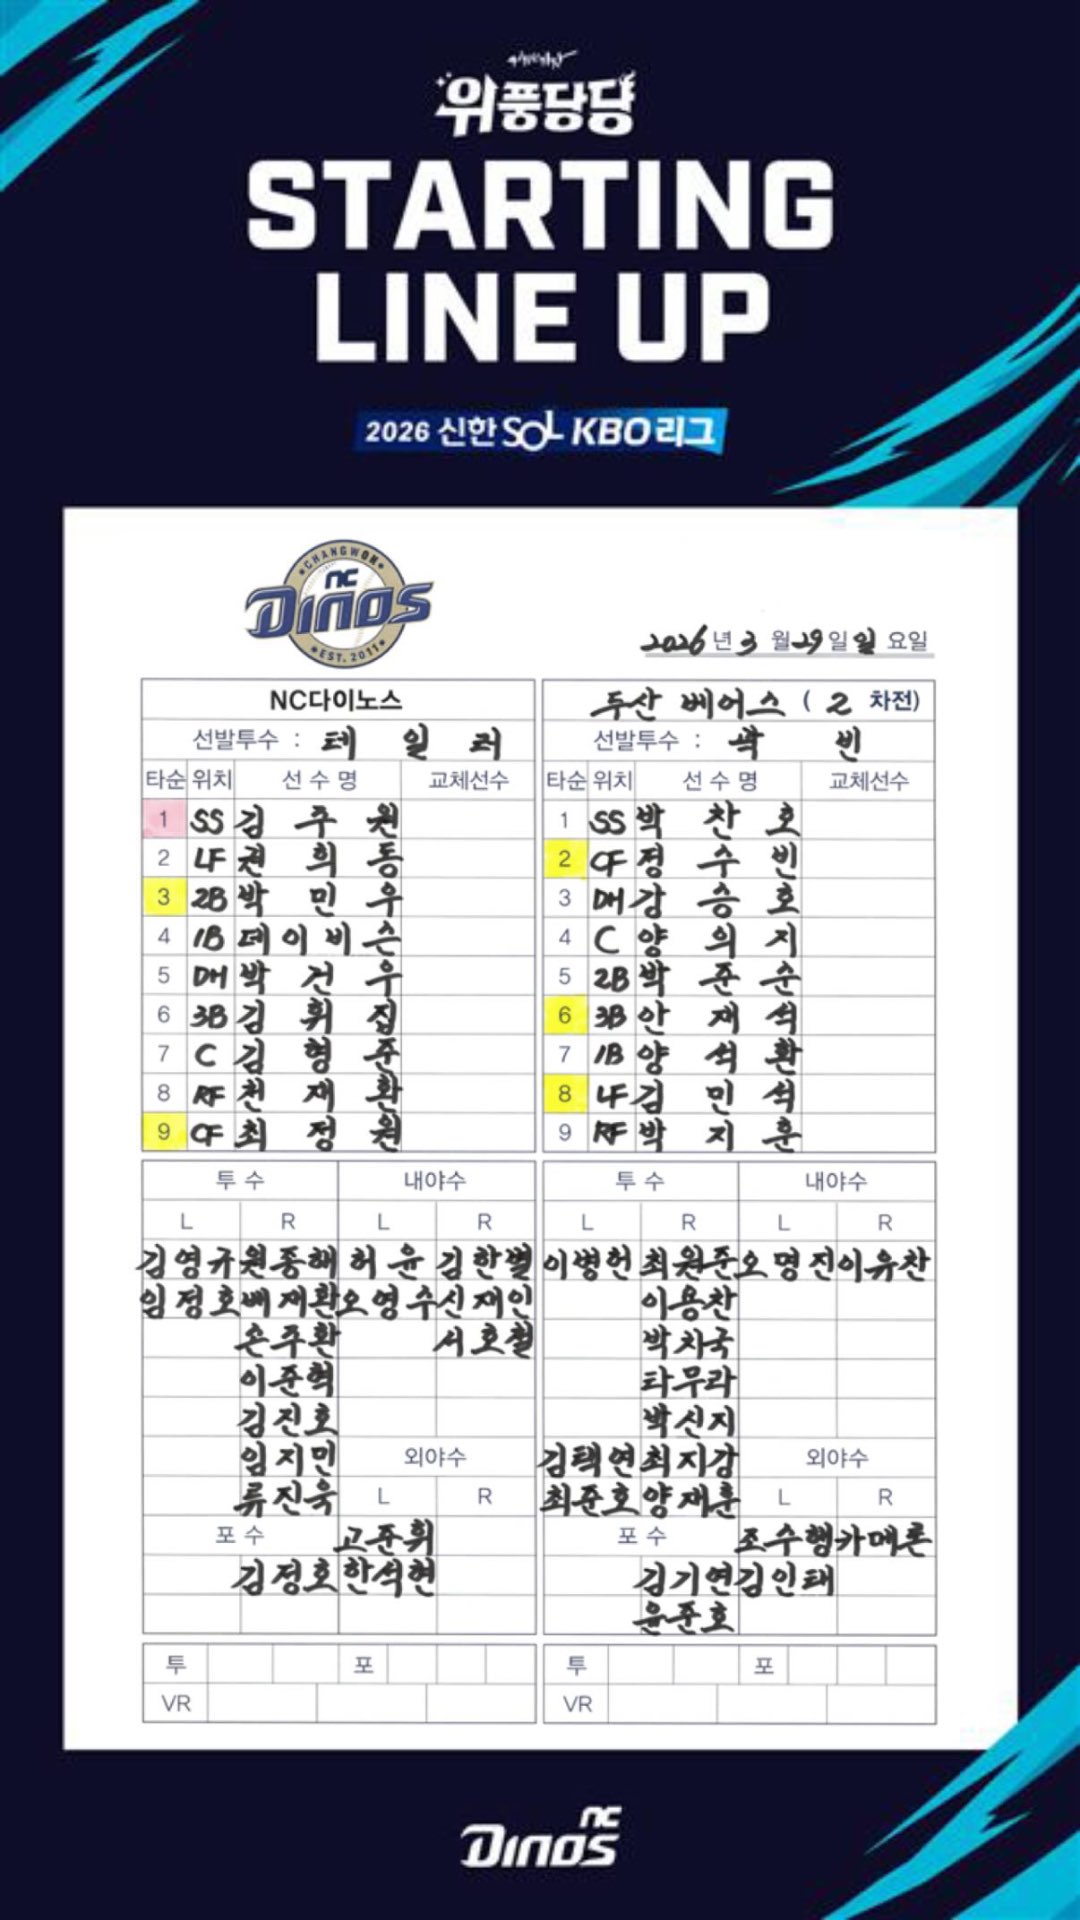 위풍당당
STARTING
LINE UP
2026 신한 SOL KBO 리그
CHANGWON
NC
DINOS
EST. 2011
2026년 3월 29일 일요일
NC다이노스
선발투수 : 테일러
타순 위치 선수명 교체선수
1 SS 김주원
2 LF 권희동
3 2B 박민우
4 1B 데이비슨
5 DH 박건우
6 3B 김휘집
7 C 김형준
8 RF 천재환
9 CF 최정원
투수 내야수
L R L R
김영규 원종해 허윤 김한별
임정호 배재환 오영수 신재인
손주환 서호철
이준혁
김진호
임지민 외야수
류진욱 L R
포수 고준휘
김정호 한석현
투 포
VR
두산 베어스 ( 2 차전)
선발투수 : 곽빈
타순 위치 선수명 교체선수
1 SS 박찬호
2 CF 정수빈
3 DH 강승호
4 C 양의지
5 2B 박준순
6 3B 안재석
7 1B 양석환
8 LF 김민석
9 RF 박지훈
투수 내야수
L R L R
이병헌 최원준 오명진 이유찬
이용찬
박치국
타무라
박신지
김택연 최지강 외야수
최준호 양재훈 L R
포수 조수행 카메론
김기연 김인태
윤준호
투 포
VR
NC
DINOS